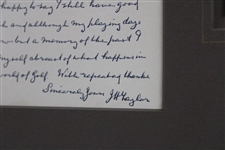 happy to say I still have good
h and although my playing days
but a memory of the past I
myself abreast of what happens in
world of Golf. With repeated thanks
Sincerely Yours J H Taylor